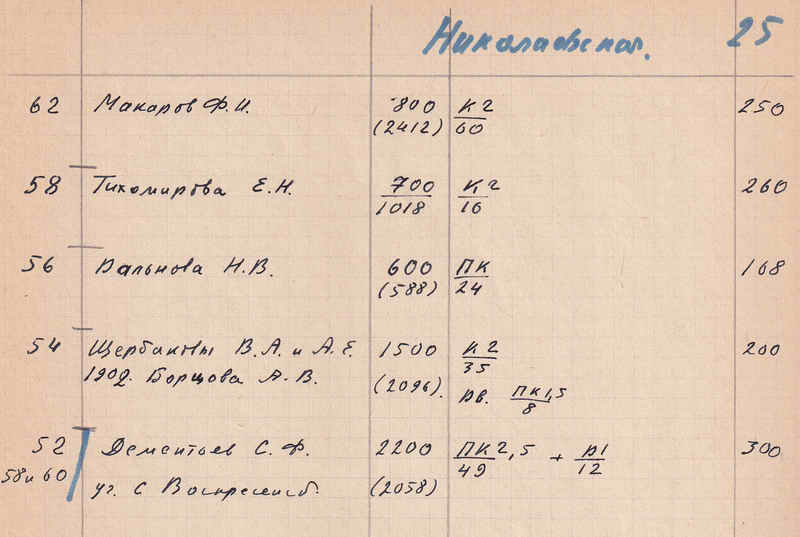 Николаевская. 25
62 Макаров Ф.И. 800 К2 250
(2412) 60
58 Тихомирова Е.Н. 700 К2 260
1018 16
56 Вальнова Н.В. 600 ПК 168
(588) 24
54 Щербаковы В.А. и А.Е. 1500 К2 200
35
1902. Борщова А.В. (2096). дв. ПК1,5
8
52 Дементьев С.Ф. 2200 ПК2,5 + д1 300
49 12
58 и 60 уг. с Воскресенск. (2058)